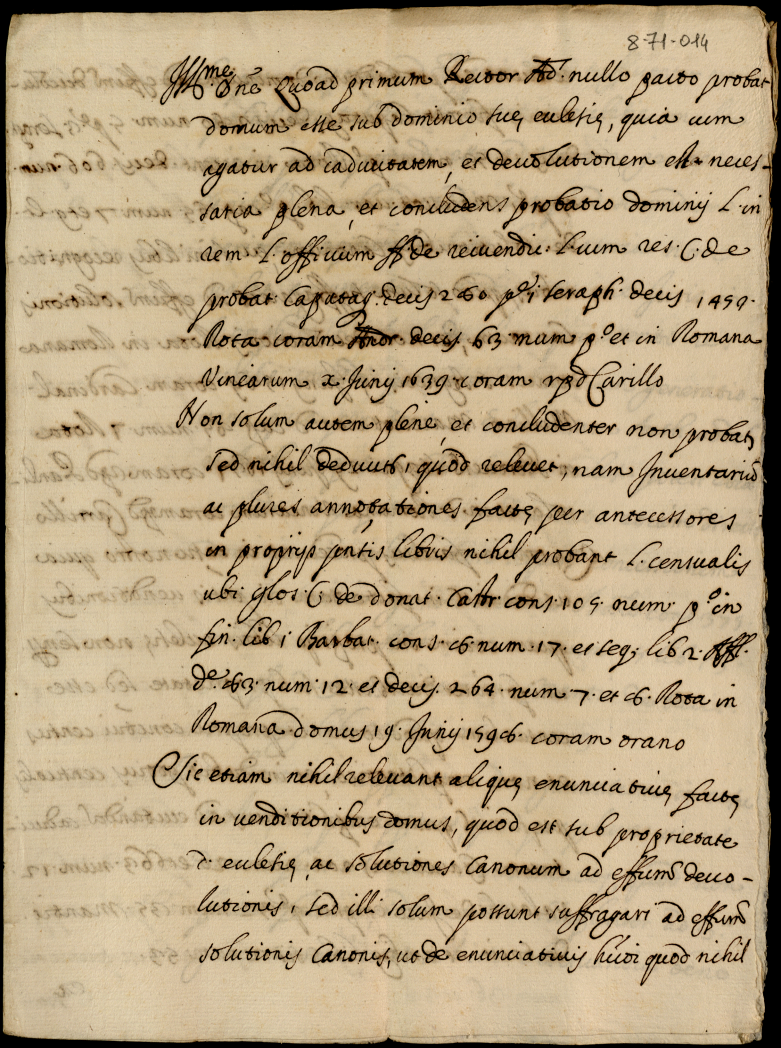 8-71-014
Ill.me Dne Quoad primum Rector Ad. nullo pacto probat
domum esse sub dominio suę ecclesię, quia cum
agatur ad caducitatem, et devolutionem est neces-
saria plena, et concludens probatio dominij L. in
rem L. officium ff. de reivendic. L. cum res. C. de
probat. Capatag. decis 260 p.e 1 seraph. decis 1459.
Rota coram decis 63 num p.o et in Romana
Vinearum x. Junij 1639 coram rpd Carillo
Non solum autem plene, et concludenter non probat,
sed nihil deducit, quod relevet, nam Inventariũ
ac plures annotationes factę per antecessores
in proprijs pñtis libris nihil probant L. censualis
ubi glos. C. de donat. Castr. cons. 105 num. p.o in
fin. lib 1 Barbat. cons. 6. num. 17. et seq. lib 2. Afff.
d.e 63. num. 12. et decis. 264. num. 7. et 6. Rota in
Romana domus 19. Junij 1596. coram orano
Sic etiam nihil relevant aliquę enunciativę factę
in venditionibus domus, quod est sub proprietate
d. ecclesię, ac solutiones Canonum ad effum̃ devo-
lutionis, sed illi solum possunt suffragari ad effum̃
solutionis Canonis, ut de enunciativis hmõi quod nihil